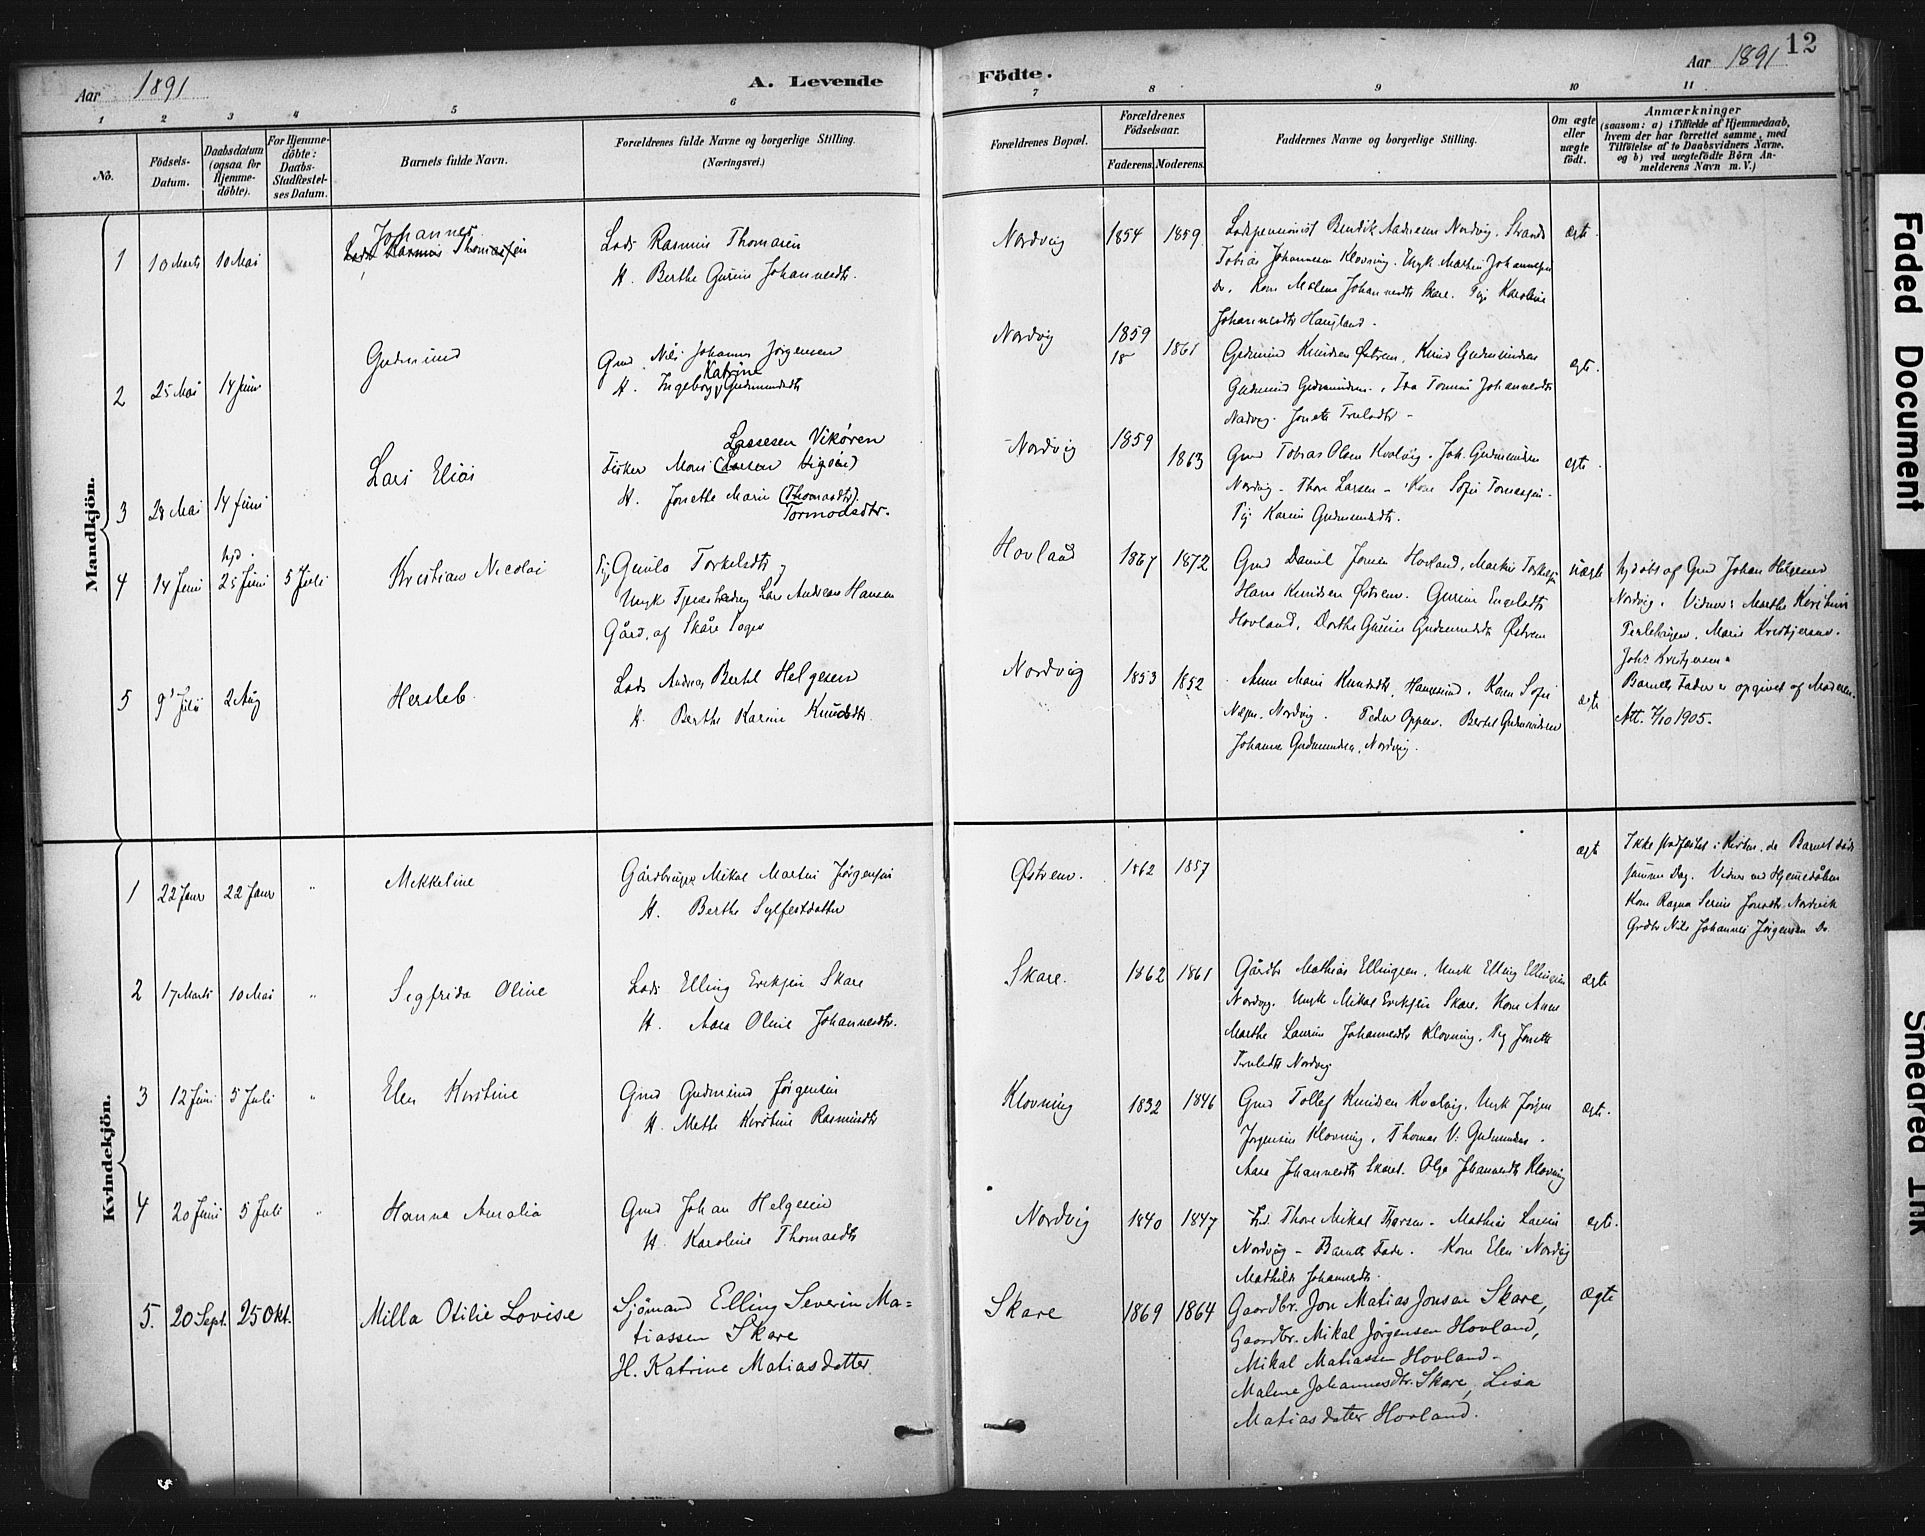 12
Aar 1891
A. Levende Födte.
Aar 1891
1 2 3 4 5 6 7 8 9 10 11
No.
Födsels-Datum.
Daabsdatum (ogsaa for Hjemme-döbte).
For Hjemme-döbte: Daabs-Stadfæstel-ses Datum.
Barnets fulde Navn.
Forældrenes fulde Navne og borgerlige Stilling.
(Næringsvei.)
Forældrenes Bopæl.
Forældrenes Födselsaar.
Faderens. Moderens.
Faddernes Navne og borgerlige Stilling.
Om ægte eller uægte födt.
Anmærkninger
(saasom: a) i Tilfælde af Hjemmedaab,
hvem der har forrettet samme, med
Tilföielse af to Daabsvidners Navne.
og b) ved uægtefödte Börn An-
melderens Navn m. V.)
Mandkjön.
1 10 Marts 10 Mai
Johannes
Rasmus Thomassen
Lods Rasmus Thomasen
H. Berthe Gurine Johannesdtr.
Nordvig 1854 1859
Lodspensionist Bendik Nordvig. Strands
Tobias Johannesen Klovning. Ungk Martin Johannesen
Do. Kone Malene Johannesdtr Skare. Pige Karoline
Johannesdtr Haugland.
ægte.
2 25 Mai 14 Juni
Gudmund
Gmd Nils Johannes Jørgensen
Katrine
H. Ingeborg Gudmundsdtr
Nordvig 1859 1861
18
Gudmund Knudsen Østrem, Knud Gudmundsen
Gudmund Gudmundsen. Johannesdtr
Jonette Trulsdtr -
ægte.
3 28 Mai 14 Juni
Lars Elias
Lassesen Vikøren
Fisker Mons (Larsen)
H. Jonette Marie (Thomasdtr).
Tormodsdtr.
Nordvig 1859 1863
Gmd Tobias Olsen Kvalvig. Joh. Gudmundsen
Nordvig - Thore Larsen - Kone Sofie
Pig Karine Gudmundsdtr.
ægte.
4 14 Juni hjd. 25 Juni 5 Juli
Kristian Nicolai
Pig Gunla Torkelsdtr
Ungk Lars Andreas Hansen
Gård, af Skåre Sogn
Hovland 1867 1872
Gmd Daniel Jonsen Hovland, Martin Torkelsen
Hans Knudsen Østrem. Gurine Engelsdtr
Hovland, Dorthe Gurine Gudmundsdtr Østrem
uægte
hjdøbt af Gmd Johan Helgesen
Nordvig. Vidner: Marthe Kristine
Marie
Joh.
Barnets Fader er opgivet af Moderen.
Att. 7/10 1905.
5 9' Juli 2 Aug
Hersleb.
Lods Andreas Bertel Helgesen
H. Berthe Karine Knudsdtr.
Nordvig 1853 1852
Anne Marie Knudsdtr, Kone Sofie
Nordvig. Peder Bertel Gudmundsen
Johannes Gudmundsen, Nordvig.
ægte
Kvindekjön.
1 22 Janr 22 Janr "
Mekkeline
Gårdbruger Mikal Martin Jørgensen
H. Berthe Sylfestdatter
Østrem. 1862 1857
ægte
Ikke stadfæstet i Kirken, da Barnet døde
samme Dag. Vidner ved Hjemmedåben
Kone Ragna Serine Jonsdtr Nordvik
Grdbr Nils Johannes Jørgensen Do.
2 17 Marts 10 Mai "
Segfrida Oline
Lods Elling Eriksen Skare
H. Aasa Oline Johannesdtr.
Skare. 1862 1861
Gårdbr Mathias Ellingsen, Ungk Elling Ellingsen
Nordvig. Ungk Mikal Eriksen Skare. Kone Anne
Marthe Laurine Johannesdtr Klovning. Pig Jonette
Trulsdtr Nordvig
ægte
3 12 Juni 5 Juli "
Elen Kirstine
Gmd Gudmund Jørgensen
H. Mette Kirstine Rasmusdtr
Klovning 1832 1846
Gmd Tollef Knudsen Kvalvig. Ungk Jørgen
Jørgensen Klovning. Thomas V. Gudmundsen.
Aasa Johannesdtr Skare. Olga Johannesdtr Klovning
ægte.
4 20 Juni 5 Juli "
Hanna Amalia
Gmd Johan Helgesen
H. Karoline Thomasdtr
Nordvig 1840 1847
Thore Mikal Mathias Larsen
Nordvig - Barnets Fader. Kone Elen Nordvig
Mathilde Johannesdtr.
ægte.
5. 20 Sept. 25 Okt.
Milla Otilie Lovise
Sjömand Elling Severin Ma-
tiassen Skare
H. Katrine Matiasdatter.
Skare 1869 1864
Gaardbr. Jon Matias Jonsen Skare,
Gaardbr. Mikal Jørgensen Hovland,
Mikal Matiassen Hovland -
Malene Johannesdtr. Skare, Lisa
Matiasdatter Hovland.
ægte
Faded Document
Smeared Ink